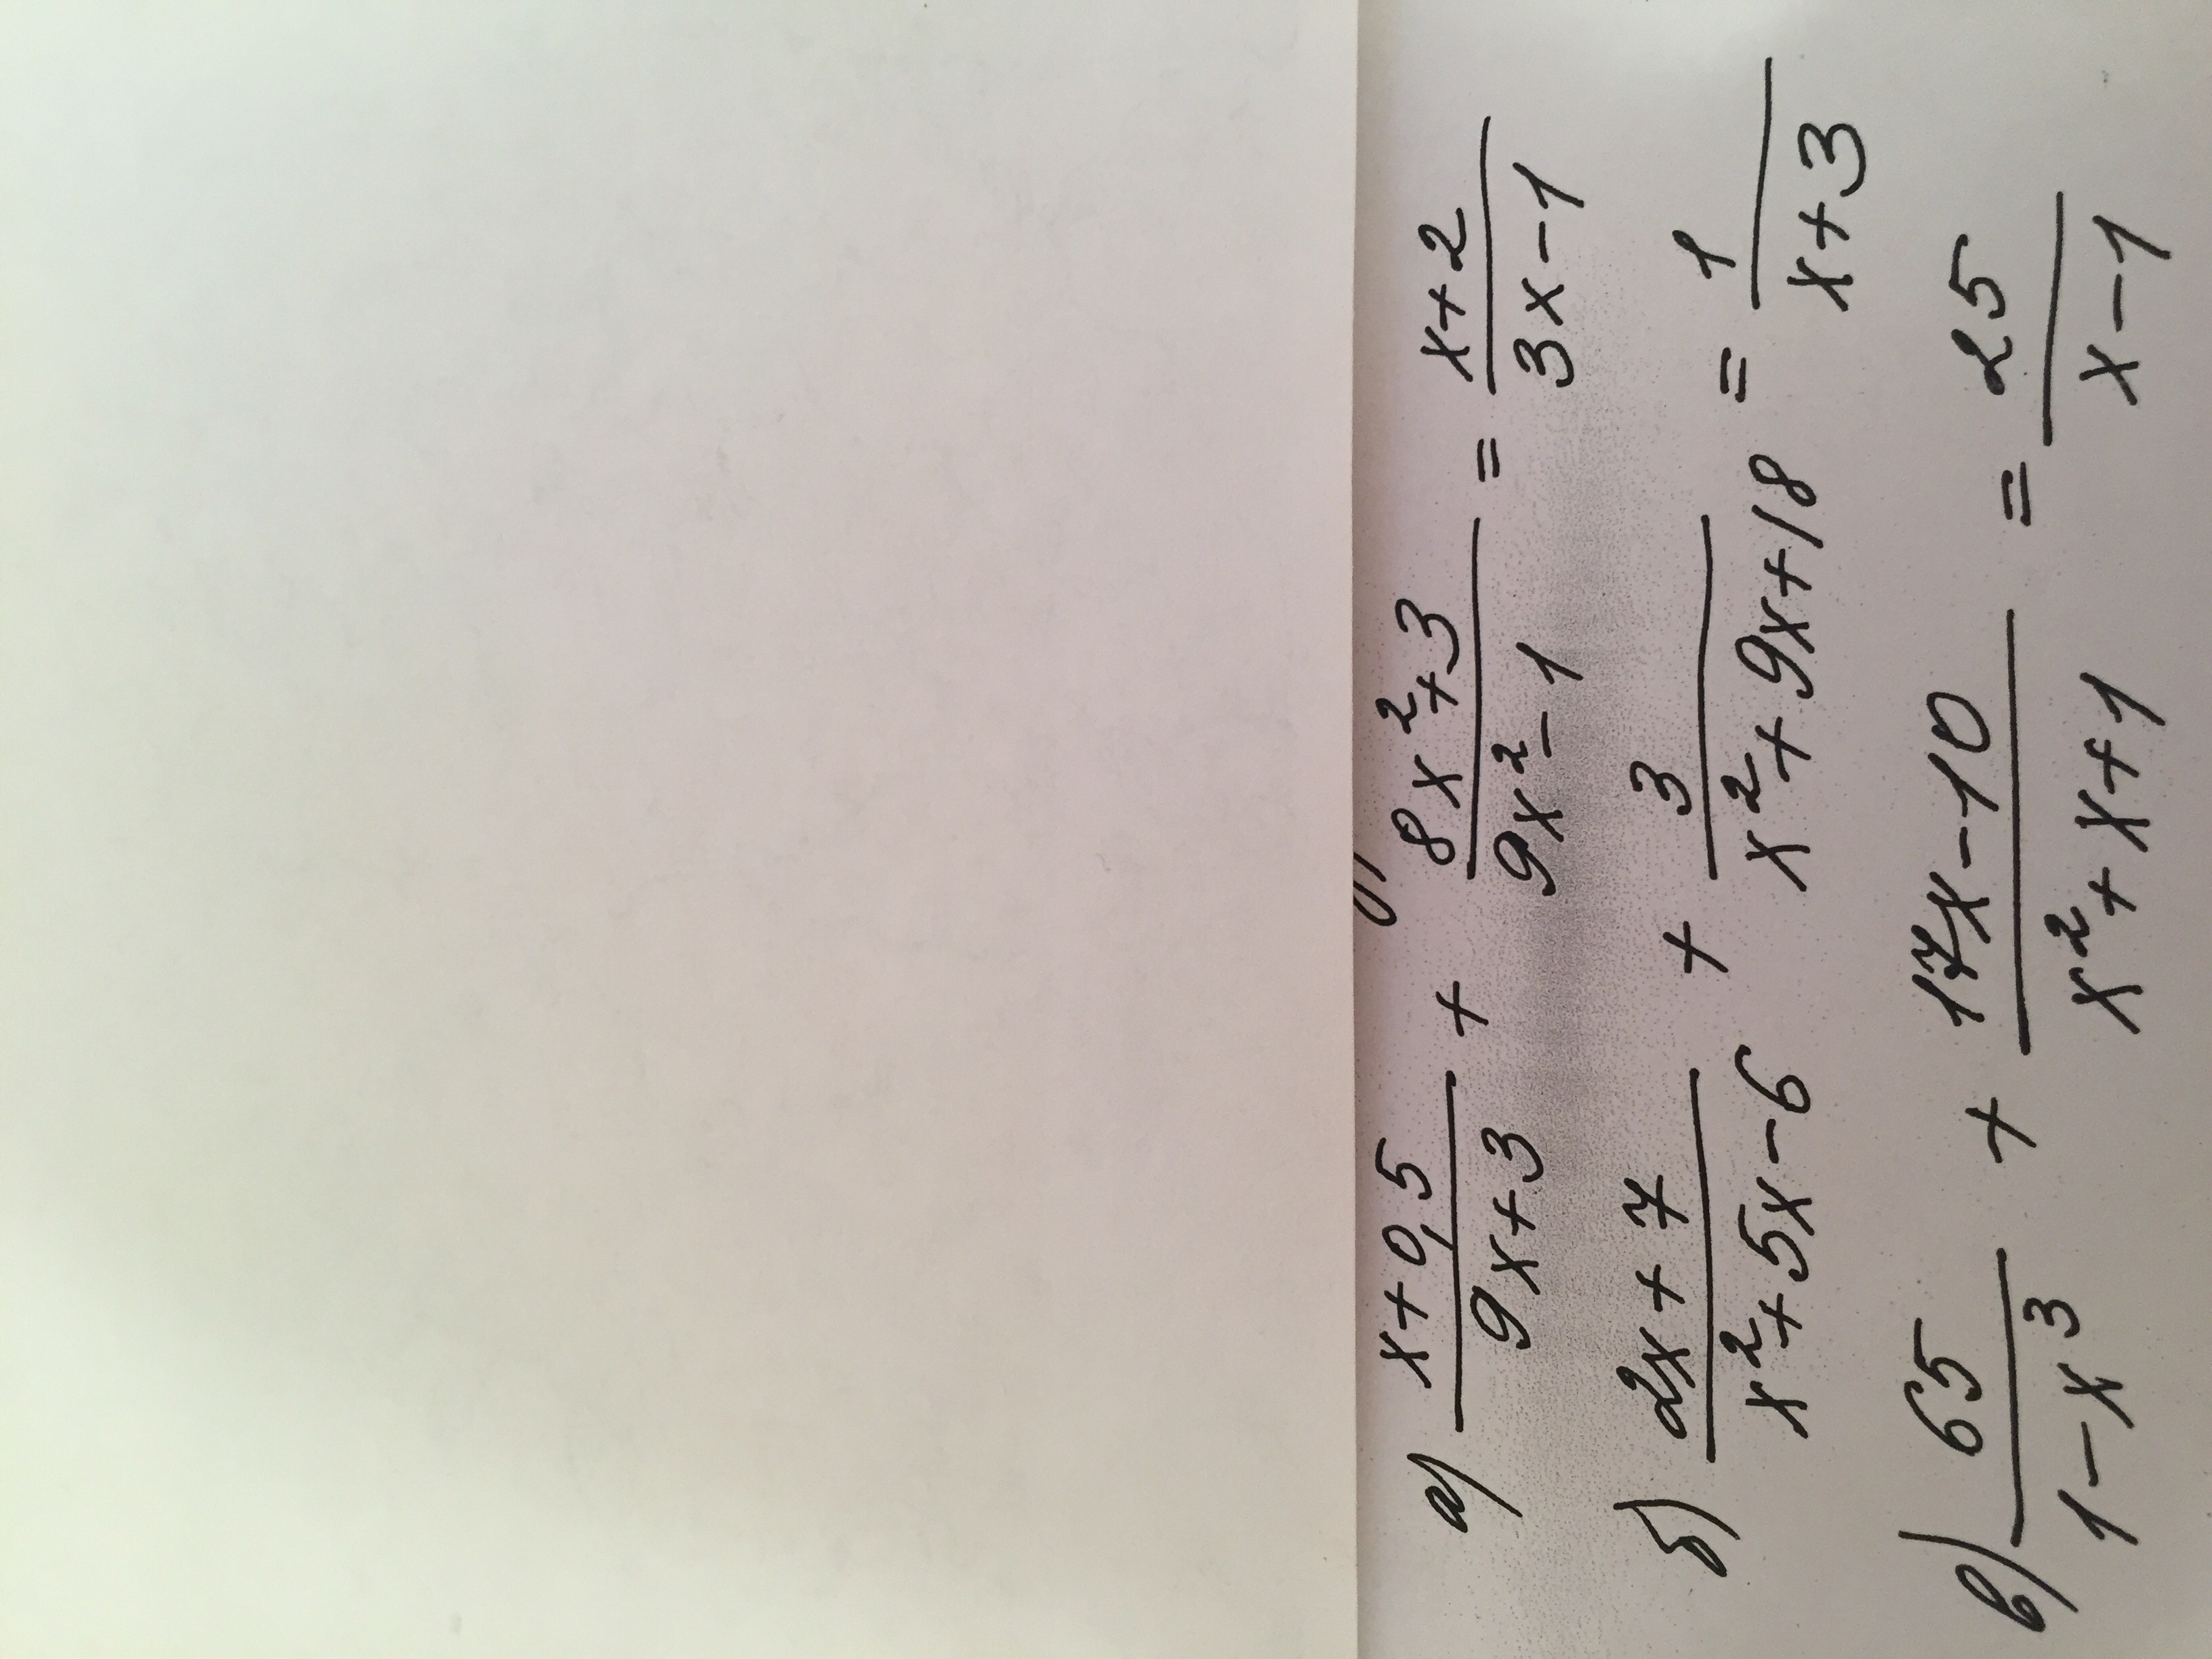 а) (x+0,5)/(9x+3) + (8x²+3)/(9x²-1) = (x+2)/(3x-1)
б) (2x+7)/(x²+5x-6) + 3/(x²+9x+18) = 1/(x+3)
в) 65/(1-x³) + (17x-10)/(x²+x+1) = 25/(x-1)